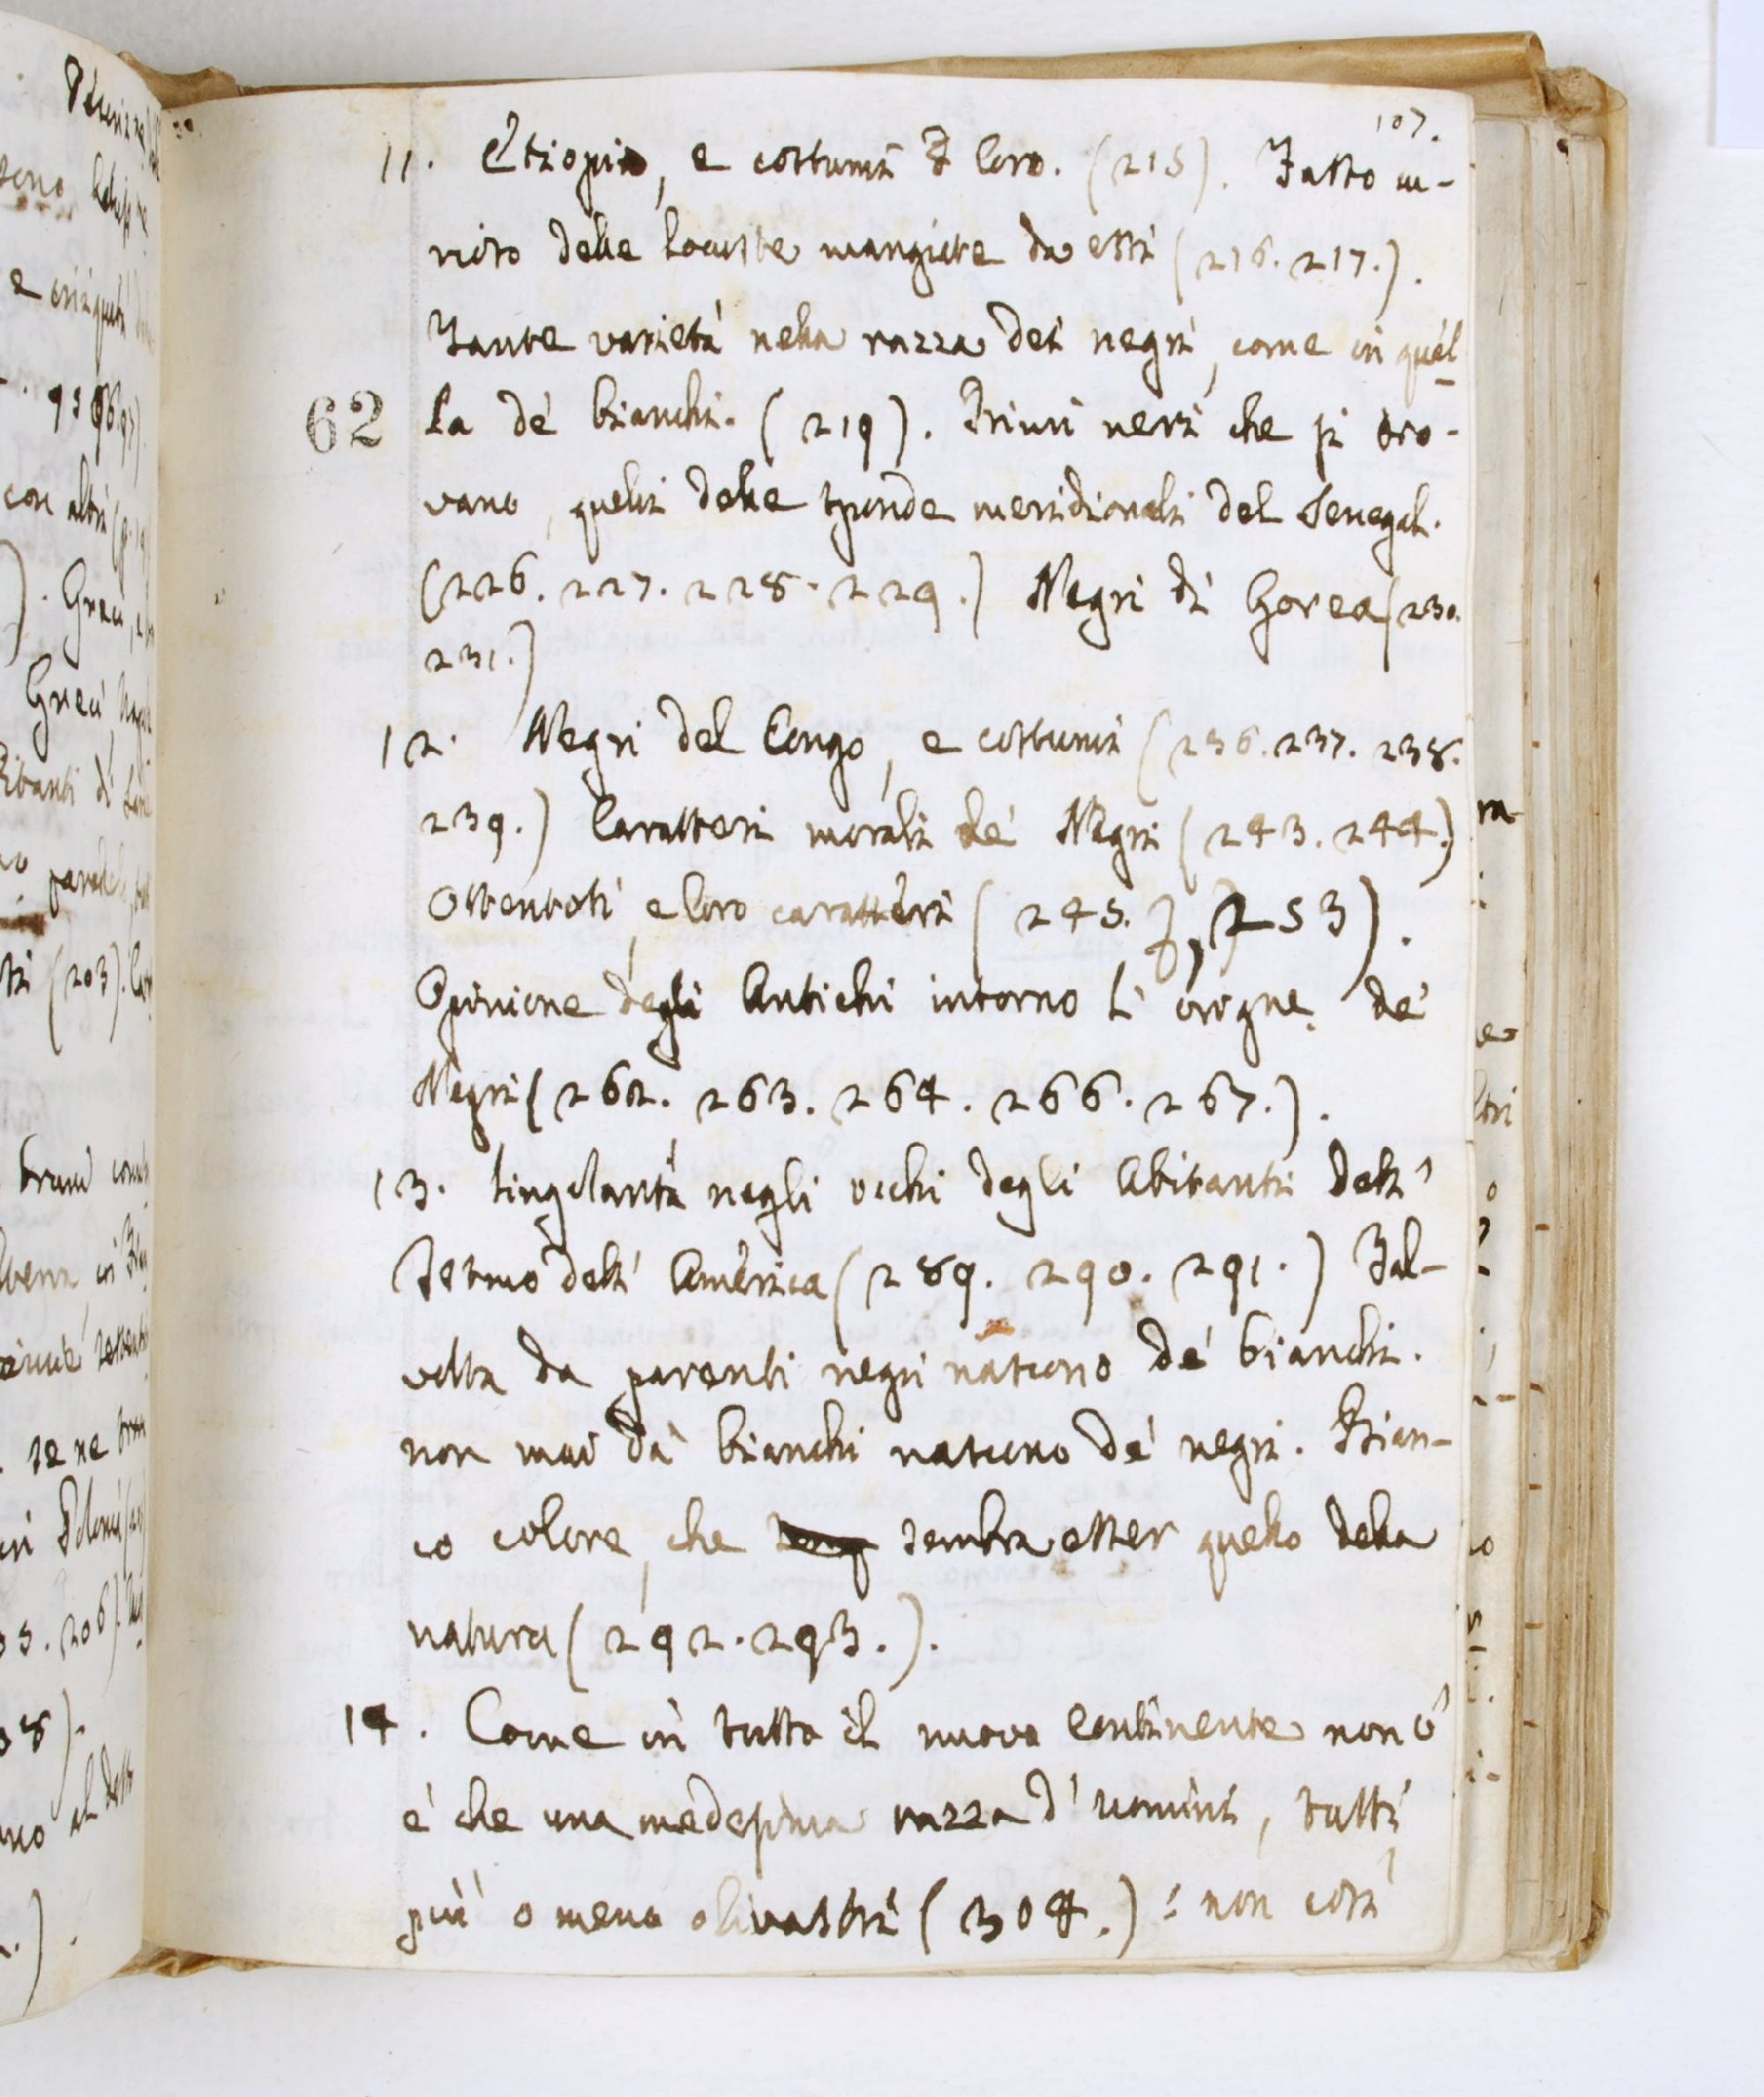 107.
11. Etiopi, e costumi loro. (215). Fatto cu-
rioso delle locuste mangiate da essi (216. 217.).
Tante varietà nella razza dei negri, come in quel
62
la de' bianchi. (219). Primi neri che si tro-
vano, quelli delle sponde meridionali del Senegal.
(226. 227. 228. 229.) Negri di Gorea (230.
231.)
12. Negri del Congo, e costumi (236. 237. 238.
239.) Caratteri morali de' Negri (243. 244.)
Ottentoti, e loro caratteri (245. 253).
Opinione degli Antichi intorno l' origne de'
Negri (262. 263. 264. 266. 267.).
13. Singolarità negli occhi degli Abitanti dell'
Istmo dell' America (289. 290. 291.) Tal-
volta da parenti negri nascono de' bianchi.
non mai da' bianchi nascono de' negri. Bian-
co colore, che sembra esser quello della
natura (292. 293.).
14. Come in tutto il nuovo continente non v'
e' che una medesima razza d' uomini, tutti
più o meno olivastri (304.): non così